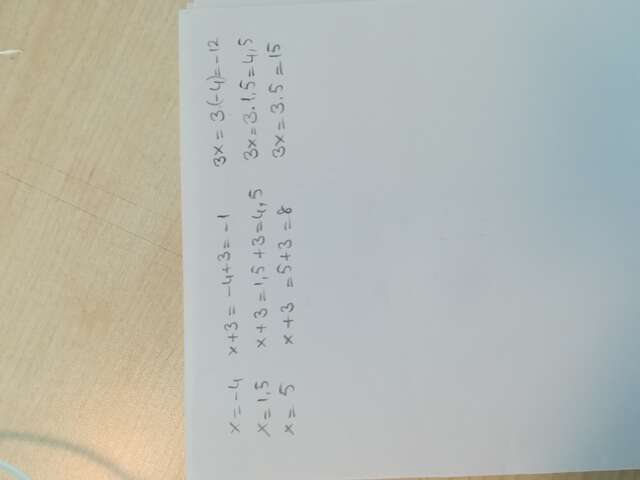 x = -4 x+3 = -4+3 = -1 3x = 3(-4) = -12
x = 1,5 x+3 = 1,5+3 = 4,5 3x = 3·1,5 = 4,5
x = 5 x+3 = 5+3 = 8 3x = 3·5 = 15